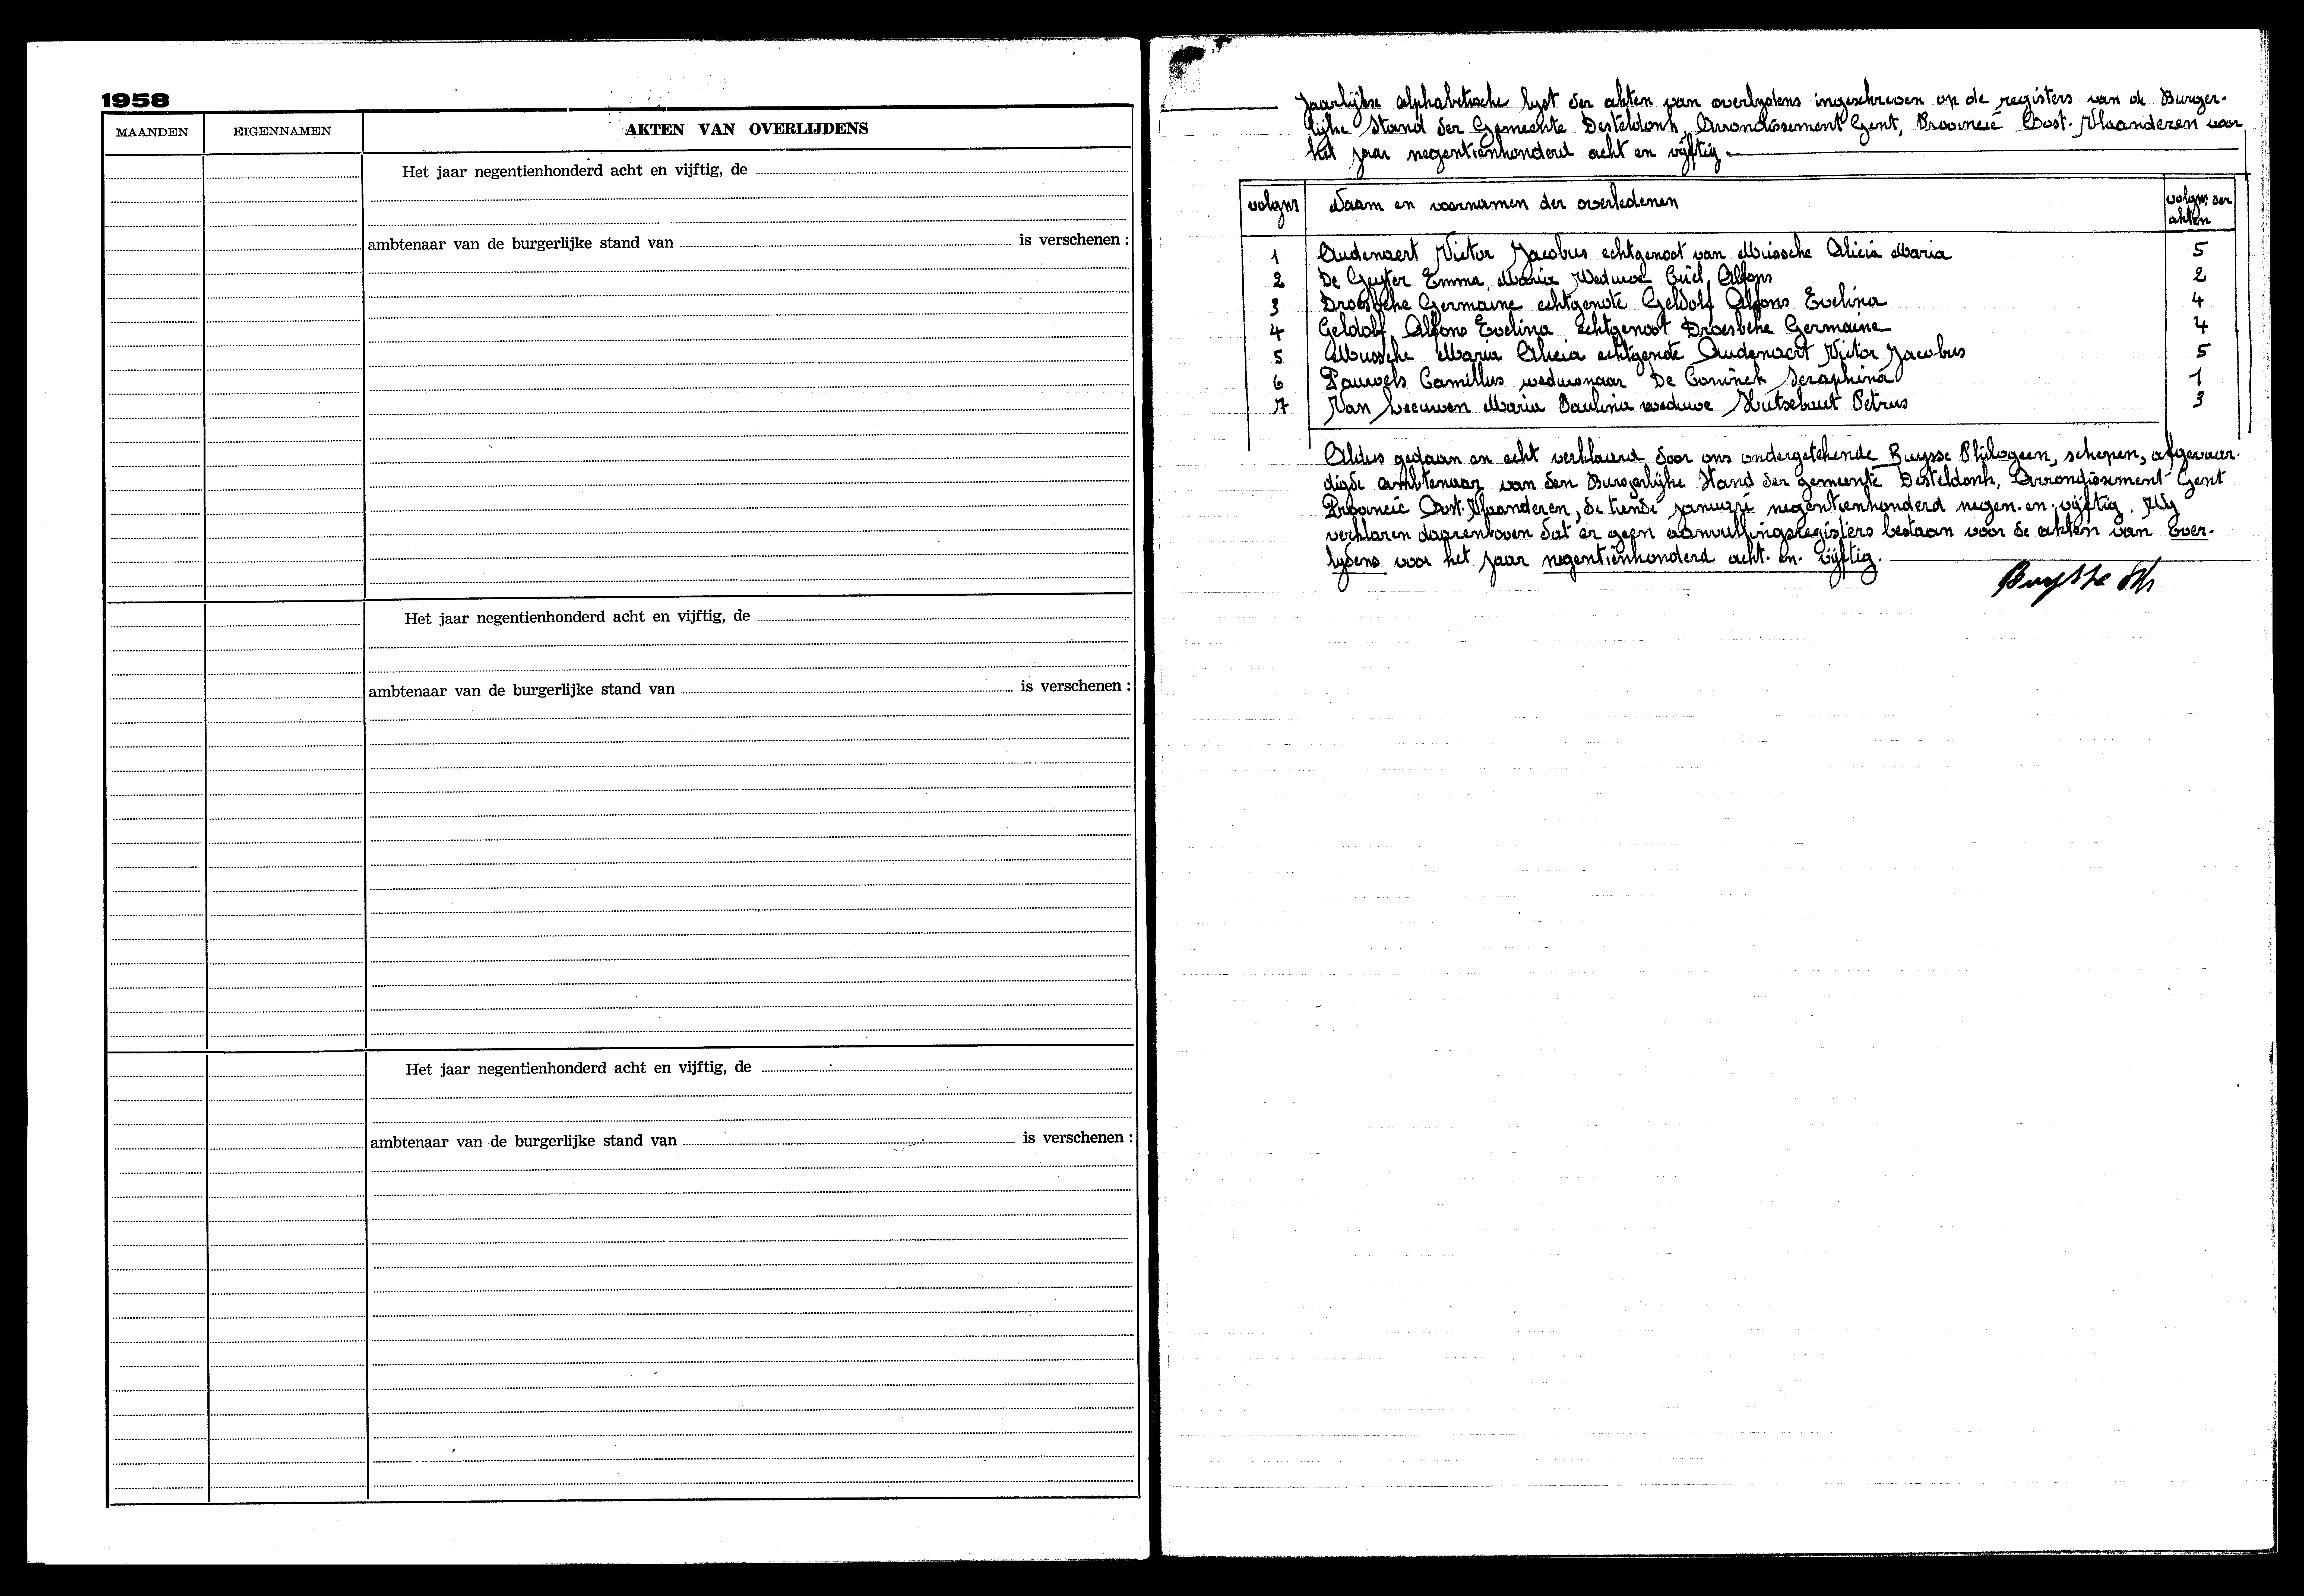 1958
MAANDEN EIGENNAMEN AKTEN VAN OVERLIJDENS
Het jaar negentienhonderd acht en vijftig, de
ambtenaar van de burgerlijke stand van is verschenen :
Het jaar negentienhonderd acht en vijftig, de
ambtenaar van de burgerlijke stand van is verschenen :
Het jaar negentienhonderd acht en vijftig, de
ambtenaar van de burgerlijke stand van is verschenen :
Jaarlijkse alphabetische lyst der akten van overlydens ingeschreven op de registers van de Burger-
lijke Stand der Gemeente Desteldonk, Arrondissement Gent, Provincie Oost-Vlaanderen voor
het jaar negentienhonderd acht en vijftig
volgnr Naam en voornamen der overledenen volgnr der
akten
1 Audenaert Victor Jacobus echtgenoot van Mussche Alicia Maria 5
2 De Geyter Emma Maria Weduwe Buel Alfons 2
3 Droesbeke Germaine echtgenote Geldolf Alfons Evelina 4
4 Geldolf Alfons Evelina echtgenoot Droesbeke Germaine 4
5 Mussche Maria Alicia echtgenote Audenaert Victor Jacobus 5
6 Pauwels Camillus weduwnaar De Coninck Seraphina 1
7 Van Leeuwen Maria Paulina weduwe Hutsebaut Petrus 3
Aldus gedaan en echt verklaard door ons ondergetekende Buysse Philogeen, schepen, afgevaar-
digde ambtenaar van den Burgerlijke Stand der gemeente Desteldonk, Arrondissement Gent
Provincie Oost-Vlaanderen, de tiende januari negentienhonderd negen-en-vijftig. Wy
verklaren daarenboven dat er geen aanvullingsregisters bestaan voor de akten van over-
lydens voor het jaar negentienhonderd acht-en-vijftig.
Buysse Ph